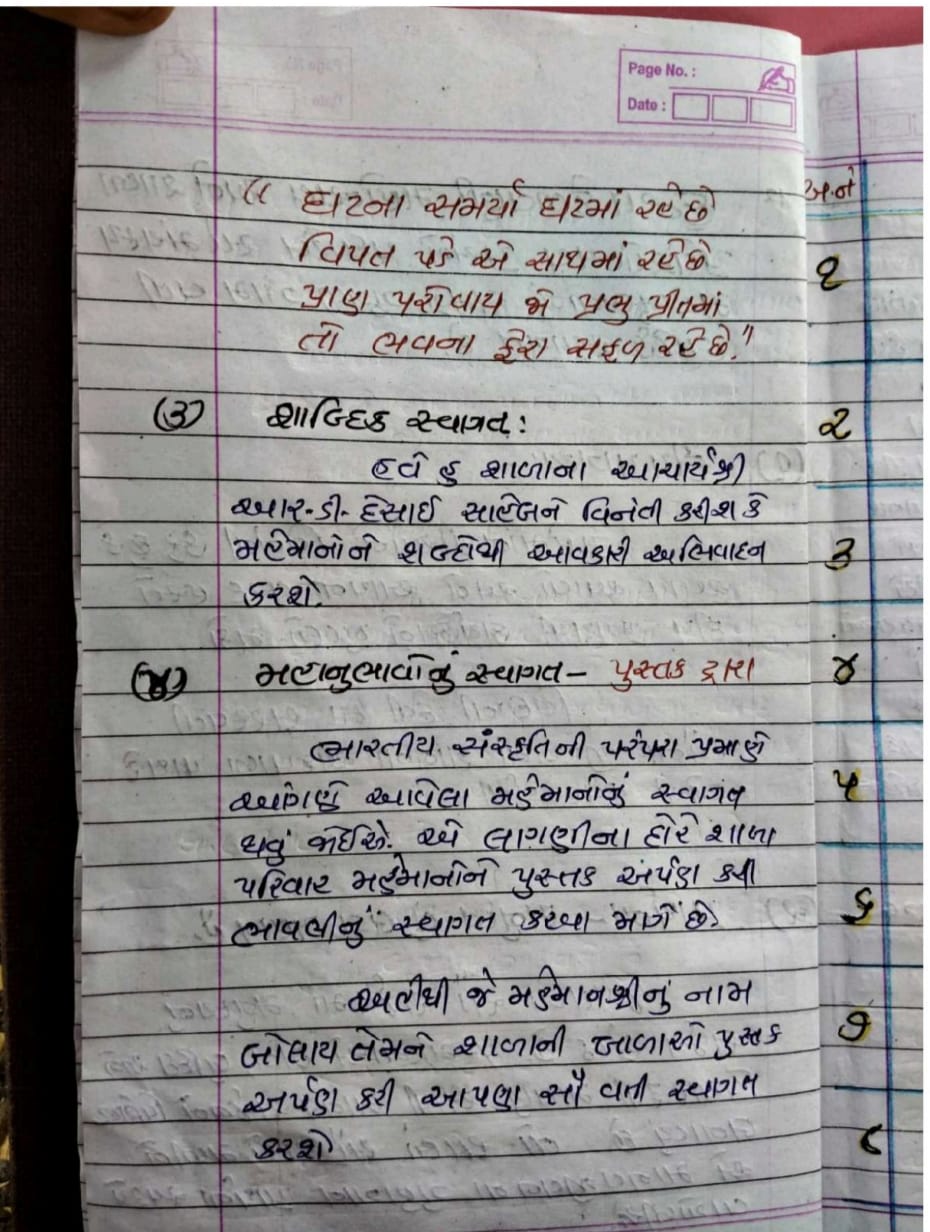 Page No. :
Date :
“ ઘાટના સમર્યા ઘાટમાં રહે છે
વિપત પડે એ સાથમાં રહે છે
પ્રાણ પરોવાય જો પ્રભુ પ્રીતમાં
તો ભવના ફેરા સફળ રહે છે."
(૩) શાબ્દિક સ્વાગત :
હવે હુ શાળાના આચાર્યશ્રી
આર. ડી. દેસાઈ સાહેબને વિનંતી કરીશ કે
મહેમાનોને શબ્દોથી આવકારી અભિવાદન
કરશે.
(૪) મહાનુભાવોનું સ્વાગત – પુસ્તક દ્વારા
ભારતીય સંસ્કૃતિની પરંપરા પ્રમાણે
આંગણે આવેલા મહેમાનોનું સ્વાગત
થવું જોઈએ. એ લાગણીના હોરે શાળા
પરિવાર મહેમાનોને પુસ્તક અર્પણ કરી
ભાવભીનું સ્વાગત કરવા માગે છે.
અહીથી જે મહેમાનશ્રીનું નામ
બોલાય તેમને શાળાની બાળાઓ પુસ્તક
અર્પણ કરી આપણા સૌ વતી સ્વાગત
કરશે
અ.નં
૧
૨
૩
૪
૫
૬
૭
૮